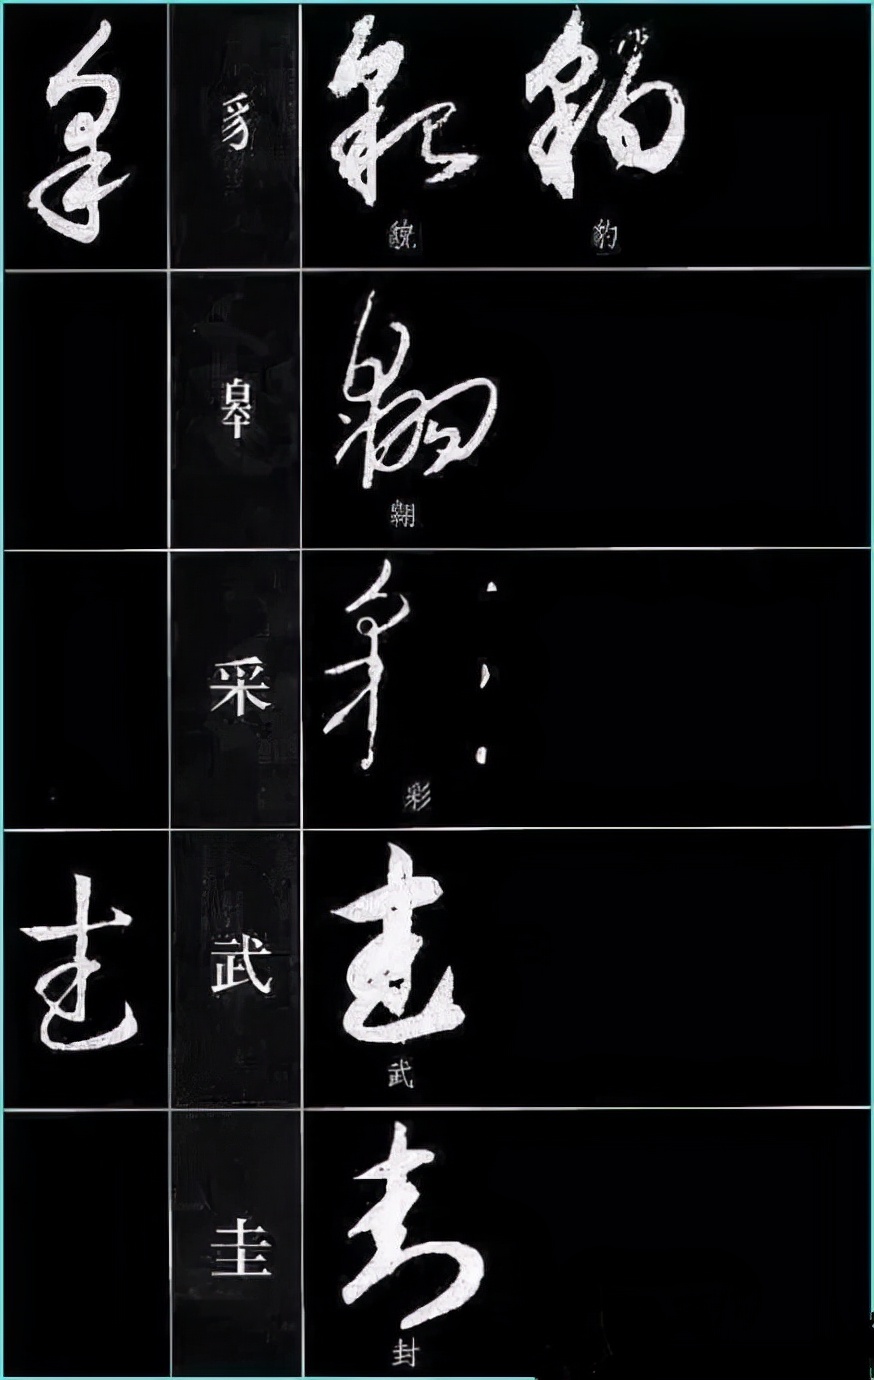 豸
豹
皋
翱
采
彩
武
武
圭
封